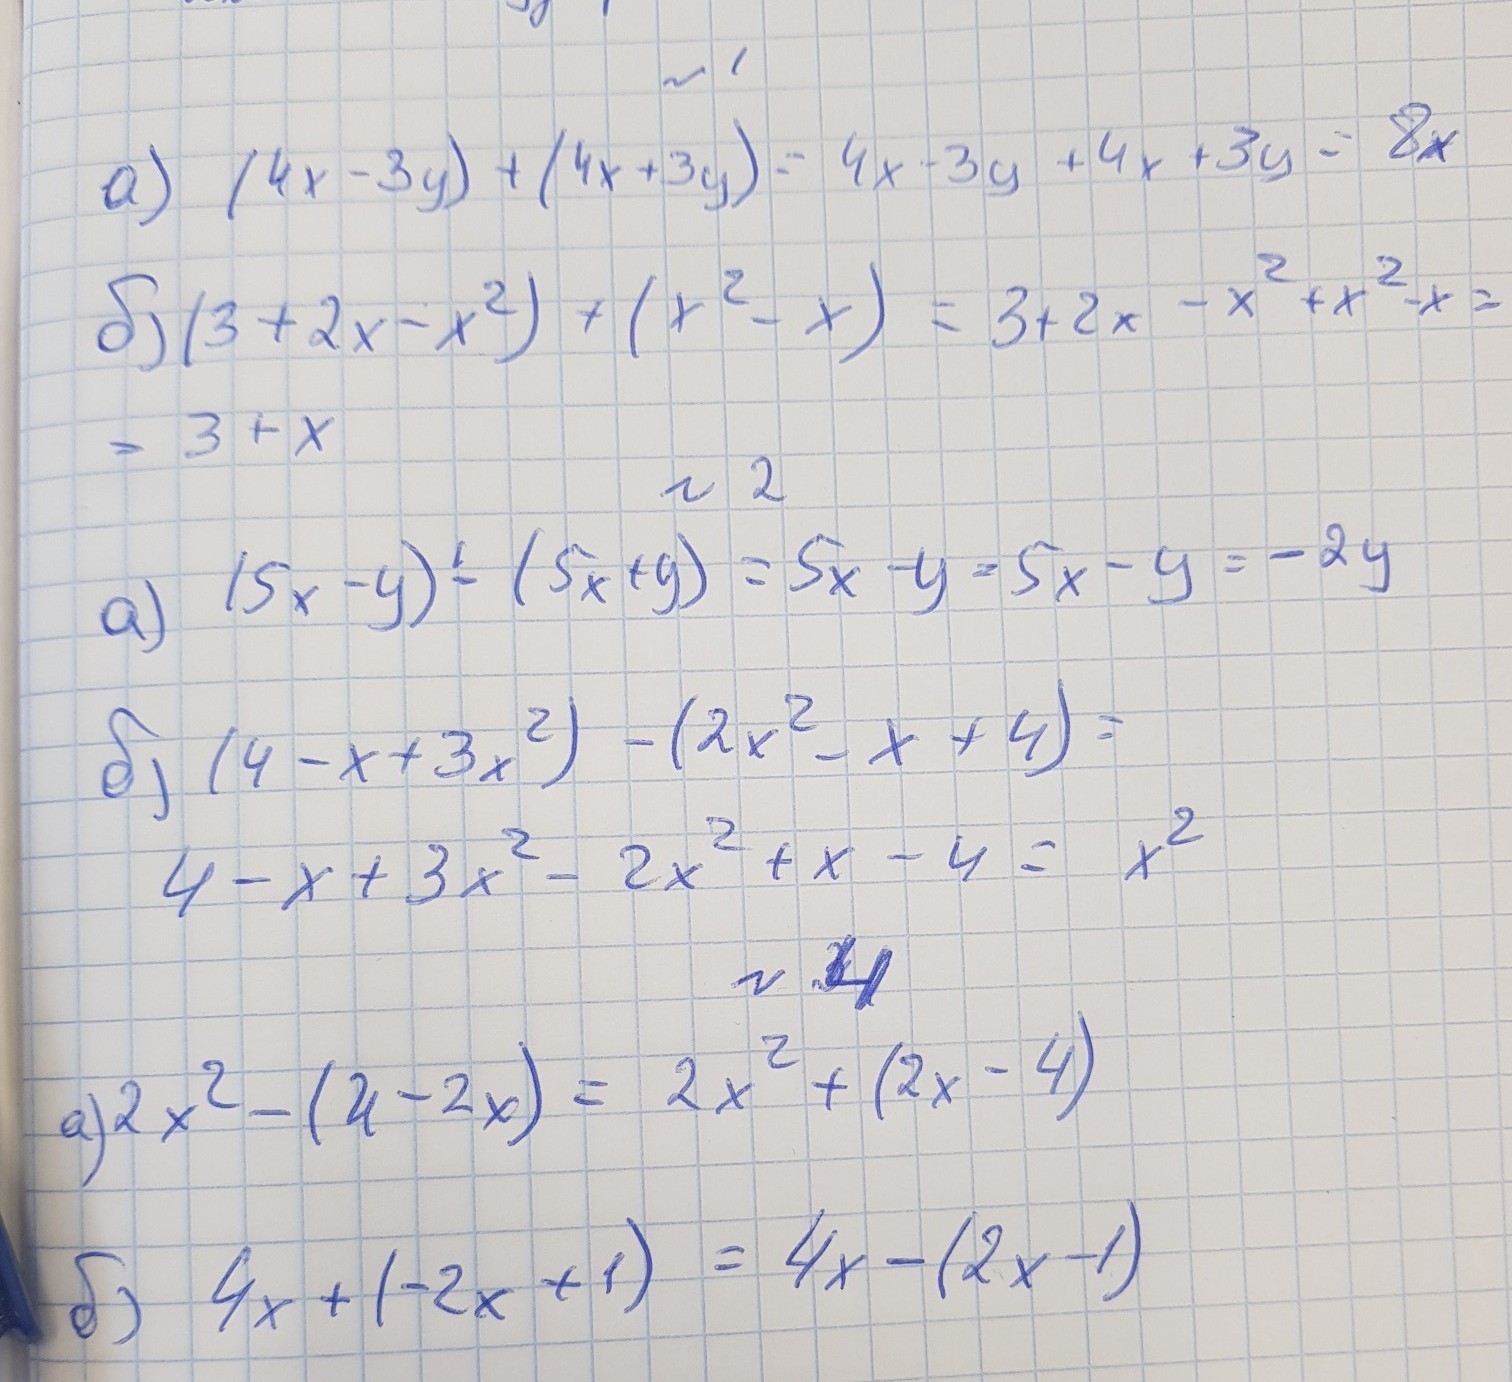 ~ 1
а) (4x - 3y) + (4x + 3y) = 4x - 3y + 4x + 3y = 8x
б) (3 + 2x - x²) + (x² - x) = 3 + 2x - x² + x² - x =
= 3 + x
~ 2
а) (5x - y) - (5x + y) = 5x - y = 5x - y = -2y
б) (4 - x + 3x²) - (2x² - x + 4) =
4 - x + 3x² - 2x² + x - 4 = x²
~ 4
а) 2x² - (4 - 2x) = 2x² + (2x - 4)
б) 4x + (-2x + 1) = 4x - (2x - 1)